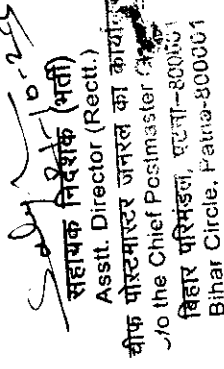 सहायक निदेशक (भर्ती)
Asstt. Director (Rectt.)
चीफ पोस्टमास्टर जनरल का कार्या
o the Chief Postmaster
बिहार परिमंडल, पटना-800001
Bihar Circle, Patna-800001